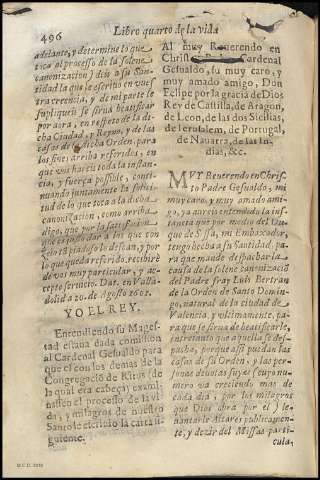 496
Libro quarto de la vida
adelante, y determine lo que
toca al processo de la solene
canonizacion) deis a su San-
tidad la que le escrivo en vuestra
creencia, y de mi parte le
supliqueis se sirva beatificar
por aora, en respeto de la di-
cha Ciudad, y Reyno, y de las
casas de dicha Orden, para
los fines arriba referidos, en
que vos hareis toda la instan-
cia, y fuerça possible, conti-
nuando juntamente la solici-
tud de lo que toca a la dicha
canonizacion, como arriba
digo, que por la satisfacion
que es justo dar a los que con
tanta piedad lo dessean, y por
lo que queda referido, recibirè
de vos muy particular, y ac-
cepto servicio. Dat. en Valla-
dolid a 20. de Agosto 1602.
YO EL REY.
Entendiendo su Mages-
tad estava dada comission
al Cardenal Gesualdo para
que el con los demas de la
Congregacion de Ritus (de
la qual era cabeça) exami-
nassen el processo de la vi-
da, y milagros de nuestro
Santo le escrivio la carta si-
guiente.
Al muy Reverendo en
Christo Cardenal
Gesualdo, su muy caro, y
muy amado amigo, Don
Felipe por la gracia de Dios
Rey de Castilla, de Aragon,
de Leon, de las dos Sicilias,
de Ierusalem, de Portugal,
de Navarra, de las In-
dias, &c.
MUY Reverendo en Chris-
to Padre Gesualdo, mi
muy caro, y muy amado ami-
go, ya avreis entendido la ins-
tancia que por medio del Du-
que de Sessa, mi Embaxador,
tengo hecha a su Santidad, pa-
ra que mande despachar la
causa de la solene canonizació
del Padre fray Luis Bertran
de la Orden de Santo Domin-
go, natural de la ciudad de
Valencia, y ultimamente, pa-
ra que se sirva de beatificarle,
entretanto que aquella se des-
pacha, porque assi puedan las
casas de su Orden, y las per-
sonas devotas suyas (cuyo nu-
mero va creciendo mas de
cada dia, por los milagros
que Dios obra por el) le-
vantarle Altares publicamen-
te, y dezir del Missas parti-
cula-